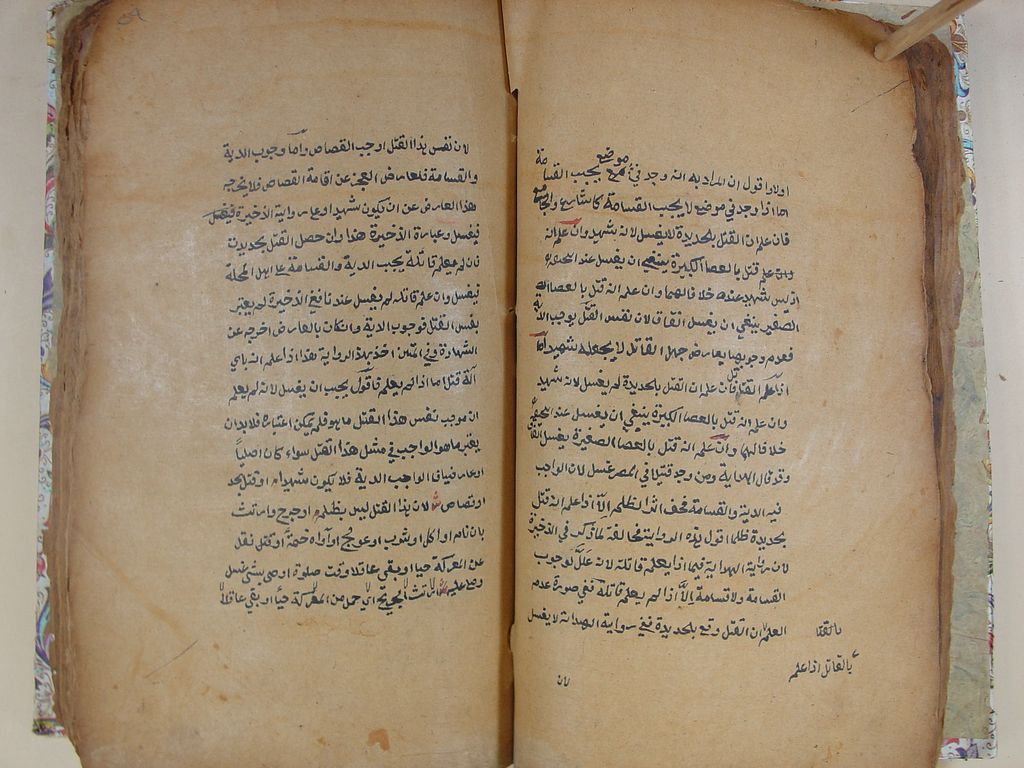 موضع
اولا واقول ان المراد به انه وجد في موضع يجب القسامة
اما اذا وجد في موضع لا يجب القسامة كالشارع والجامع
فان علم ان القتل بالحديدة لا يغسل لانه شهيد وان علم انه
قتل بالعصا الكبيرة ينبغي ان يغسل عند ابي حنيفة
اذ ليس بشهيد عنده خلافا لهما وان علم انه قتل بالعصا
الصغير ينبغي ان يغسل اتفاقا لان نفس القتل يوجب الدية
فعدم وجوبها بعارض جهل القاتل لا يجعله شهيدا اما
اذا علم القاتل فان علم ان القتل بالحديدة لم يغسل لانه شهيد
وان علم انه قتل بالعصا الكبيرة ينبغي ان يغسل عند ابي حنيفة
خلافا لهما وان علم انه قتل بالعصا الصغيرة يغسل اتفاقا
وقد قال الهداية ومن وجد قتيلا في المصر غسل لان الواجب
فيه الدية والقسامة فخف اثر الظلم الا اذا علم انه قتل
بحديدة ظلما اقول هذه الرواية مخالفة لما ذكر في الذخيرة
لان رواية الهداية فيما اذا يعلم قاتله لانه علل بوجوب
القسامة ولا قسامة الا اذا لم يعلم قاتله ففي صورة عدم
العلم ان القتل وقع بالحديدة ففي رواية الهداية لا يغسل
بالقتل
بالقاتل اذا علم
لان
لان نفس هذا القتل اوجب القصاص واما وجوب الدية
والقسامة فلعارض العجز عن اقامة القصاص فلا يخرجه
هذا العارض عن ان يكون شهيدا وعلى رواية الذخيرة فيغسل
فيغسل وعبارة الذخيرة هذا وان حصل القتل بحديدة
فان لم يعلم قاتله يجب الدية والقسامة على اهل المحلة
فيغسل وان علم قاتله لم يغسل عندنا ففي الذخيرة لم يعتبر
نفس القتل فوجوب الدية وان كان بالعارض اخرجه عن
الشهادة وفي المتن اخذ بهذه الرواية هذا اذا علم انه باي
آلة قتل اما اذا لم يعلم فاقول يجب ان يغسل لانه لم يعلم
ان موجب نفس هذا القتل ما هو فلم يمكن اعتباره فلا بد ان
يعتبر ما هو الواجب في مثل هذا القتل سواء كان اصليا
او عارضيا فالواجب الدية فلا يكون شهيدا او قتل بحد
او قصاص لان هذا القتل ليس بظلم او جرح وارتث
بان نام او اكل او شرب او عولج او آواه خيمة او نقل
عن المعركة حيا او بقي عاقلا وقت صلوة او اوصى بشئ غسل
وصلي عليه ارتث الجريح اي حمل من المعركة حيا او بقي عاقلا